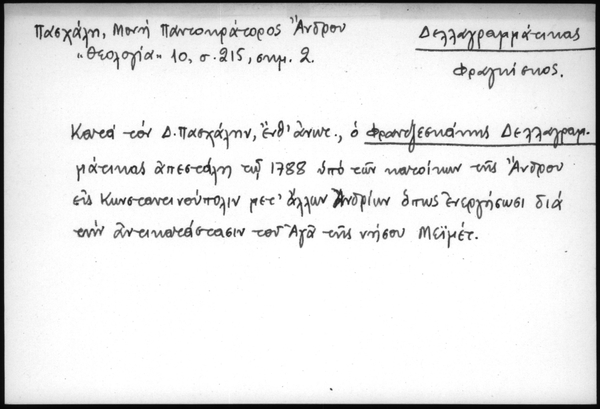 Πασχάλη, Μονή Παντοκράτορος Ἄνδρου
"Θεολογία" 10, σ. 215, σημ. 2.
Δελλαγραμμάτικας
Φραγκίσκος.
Κατά τόν Δ. Πασχάλην, ἔνθ' ἀνωτ., ὁ Φραντζεσκάκης Δελλαγραμ-
μάτικας ἀπεστάλη τῷ 1788 ὑπό τῶν κατοίκων τῆς Ἄνδρου
εἰς Κωνσταντινούπολιν μετ' ἄλλων Ἀνδρίων ὅπως ἐνεργήσωσι διά
τήν ἀντικατάστασιν τοῦ Ἀγᾶ τῆς νήσου Μεϊμέτ.